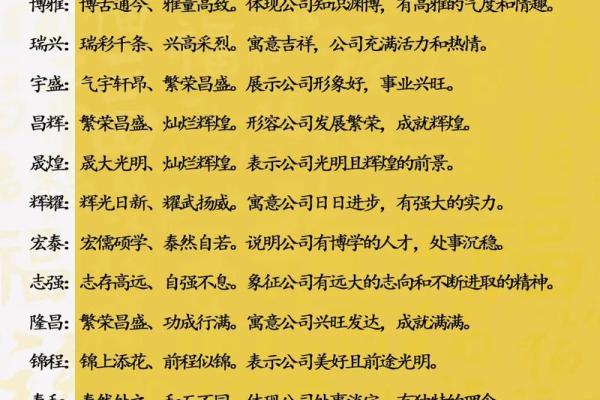 博雅：博古通今、雅量高致。体现公司知识渊博，有高雅的气度和情趣。
瑞兴：瑞彩千条、兴高采烈。寓意吉祥，公司充满活力和热情。
宇盛：气宇轩昂、繁荣昌盛。展示公司形象好，事业兴旺。
昌辉：繁荣昌盛、灿烂辉煌。形容公司发展繁荣，成就辉煌。
晟煌：晟大光明、灿烂辉煌。表示公司光明且辉煌的前景。
辉耀：辉光日新、耀武扬威。寓意公司日日进步，有强大的实力。
宏泰：宏儒硕学、泰然自若。说明公司有博学的人才，处事沉稳。
志强：志存高远、自强不息。象征公司有远大的志向和不断进取的精神。
隆昌：繁荣昌盛、功成行满。寓意公司兴旺发达，成就满满。
锦程：锦上添花、前程似锦。表示公司美好且前途光明。
泰和：泰然处之、和而不同。体现公司处事淡定，有独特的理念。